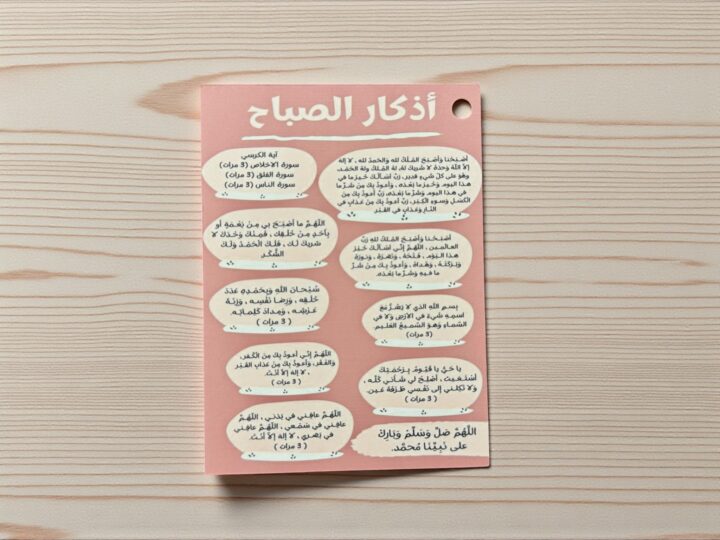 أذكار الصباح
أَصْبَحْنا وَأَصْبَحَ المُلْكُ لله وَالحَمدُ لله ، لا إلهَ
إلاّ اللهُ وَحدَهُ لا شَريكَ لهُ، لهُ المُلكُ ولهُ الحَمْد،
وهُوَ على كلّ شَيءٍ قدير ، رَبِّ أسْألُكَ خَيرَ ما في
هذا اليوم وَخَيرَ ما بَعْدَه ، وَأَعوذُ بِكَ مِنْ شَرِّ ما
في هذا اليوم وَشَرِّ ما بَعْدَه، رَبِّ أَعوذُ بِكَ مِنَ
الْكَسَلِ وَسوءِ الْكِبَر ، رَبِّ أَعوذُ بِكَ مِنْ عَذابٍ في
النّارِ وَعَذابٍ في القَبْر
آية الكرسي
سورة الاخلاص (3 مرات)
سورة الفلق (3 مرات)
سورة الناس (3 مرات)
أَصْبَحْنا وَأَصْبَحَ المُلكُ للهِ رَبِّ
العالَمين ، اللّهُمَّ إِنِّي أسْألُكَ خَيْرَ
هذا اليَوْم ، فَتْحَهُ ، وَنَصْرَهُ ، وَنورَهُ
وَبَرَكَتَهُ ، وَهُداهُ ، وَأَعوذُ بِكَ مِنْ شَرِّ
ما فيهِ وَشَرِّ ما بَعْدَه.
اللّهُمَّ ما أَصْبَحَ بي مِنْ نِعْمَةٍ أو
بِأَحَدٍ مِنْ خَلْقِك ، فَمِنْكَ وَحْدَكَ لا
شريكَ لَك ، فَلَكَ الْحَمْدُ وَلَكَ
الشُّكْر
بِسمِ اللهِ الذي لا يَضُرُّ مَعَ
اسمِهِ شَيءٌ في الأرْضِ وَلا في
السّماءِ وَهوَ السّميعُ العَليم.
(3 مرات)
سُبْحانَ اللهِ وَبِحَمْدِهِ عَدَدَ
خَلْقِه ، وَرِضا نَفْسِه ، وَزِنَةَ
عَرْشِه ، وَمِدادَ كَلِماتِه.
( 3 مرات )
يا حَيُّ يا قَيُّومُ بِرَحْمَتِكَ
أسْتَغيث ، أَصْلِحْ لي شَأني كُلَّه ،
وَلا تَكِلني إلى نَفْسي طَرْفَةَ عَين.
( 3 مرات )
اللّهُمَّ إِنّي أَعوذُ بِكَ مِنَ الْكُفْر،
وَالفَقْر ، وَأَعوذُ بِكَ مِنْ عَذابِ القَبْر
، لا إلهَ إلاّ أَنْتَ.
( 3 مرات )
اللَّهُمَّ صَلِّ وَسَلِّمْ وَبَارِك
على نَبِيِّنَا مُحمَّد.
اللّهُمَّ عافِني في بَدَني ، اللّهُمَّ
عافِني في سَمْعي ، اللّهُمَّ عافِني
في بَصَري ، لا إلهَ إلاّ أَنْتَ.
( 3 مرات )